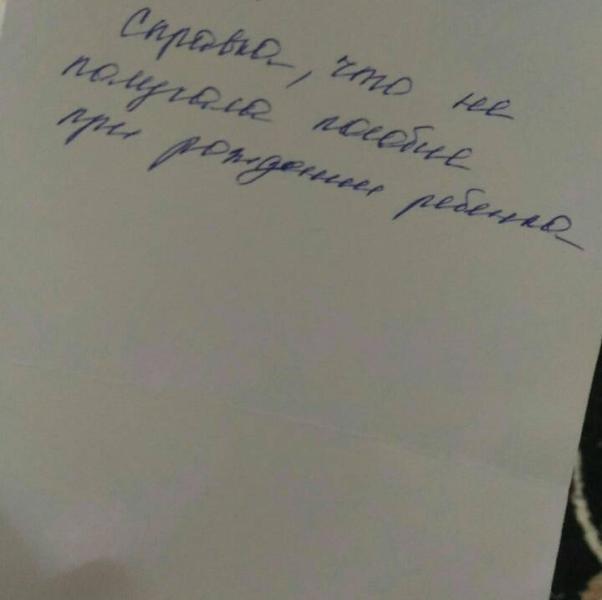 Справка, что не
получала пособие
при рождении ребенка